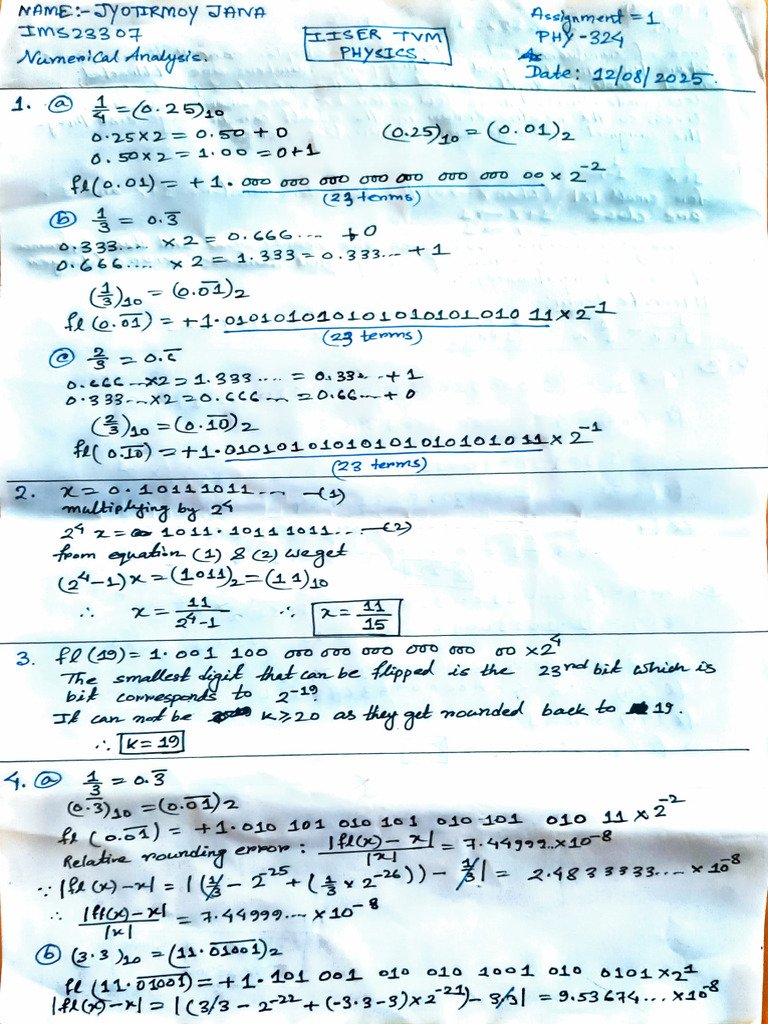 NAME:- JYOTIRMOY JANA
IMS23307
Numerical Analysis.
IISER TVM
PHYSICS.
Assignment = 1
PHY-324
Date: 12/08/2025.
1. (a) 1/4 = (0.25)₁₀
0.25×2 = 0.50 + 0
0.50×2 = 1.00 = 0+1
(0.25)₁₀ = (0.01)₂
fl(0.01) = +1. 000 000 000 000 000 000 000 00 × 2⁻²
(23 terms)
(b) 1/3 = 0.3̅
0.333.... × 2 = 0.666.... + 0
0.666.... × 2 = 1.333 = 0.333... + 1
(1/3)₁₀ = (0.0̅1̅)₂
fl(0.0̅1̅) = +1.01010101010101010101011 × 2⁻¹
(23 terms)
(c) 2/3 = 0.6̅
0.666...×2 = 1.333.... = 0.33... + 1
0.333...×2 = 0.666... = 0.66... + 0
(2/3)₁₀ = (0.1̅0̅)₂
fl(0.1̅0̅) = +1.01010101010101010101011 × 2⁻¹
(23 terms)
2. x = 0.10111011... —(1)
multiplying by 2⁴
2⁴ x = 1011.10111011... —(2)
from equation (1) & (2) we get
(2⁴-1)x = (1011)₂ = (11)₁₀
∴ x = 11/(2⁴-1) ∴ x = 11/15
3. fl(19) = 1.001 100 000 000 000 000 000 00 ×2⁴
The smallest digit that can be flipped is the 23rd bit which is
bit corresponds to 2⁻¹⁹.
It can not be k≥20 as they get rounded back to 19.
∴ k=19
4. (a) 1/3 = 0.3̅
(0.3̅)₁₀ = (0.0̅1̅)₂
fl(0.0̅1̅) = +1.010 101 010 101 010 101 010 11 × 2⁻²
Relative rounding error: |fl(x) - x|/|x| = 7.44999..×10⁻⁸
∵ |fl(x)-x| = |(1/3 - 2⁻²⁵ + (1/3 × 2⁻²⁶)) - 1/3| = 2.4833333... ×10⁻⁸
∴ |fl(x)-x|/|x| = 7.44999.... ×10⁻⁸
(b) (3.3)₁₀ = (11.0̅1̅0̅0̅1̅)₂
fl(11.0̅1̅0̅0̅1̅) = +1.101 001 010 010 1001 010 0101 ×2¹
|fl(x)-x| = |(3/3 - 2⁻²² + (-3.3-3)×2⁻²¹) - 3/3| = 9.53674... ×10⁻⁸